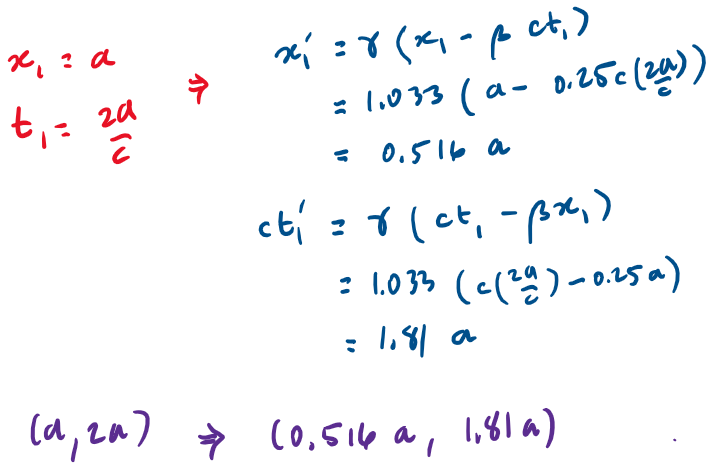 x₁ = a ⇒ x₁' = γ (x₁ - β ct₁)
t₁ = 2a/c
= 1.033 (a - 0.25c(2a/c))
= 0.516 a
ct₁' = γ (ct₁ - βx₁)
= 1.033 (c(2a/c) - 0.25a)
= 1.81 a
(a, 2a) ⇒ (0.516 a, 1.81a)